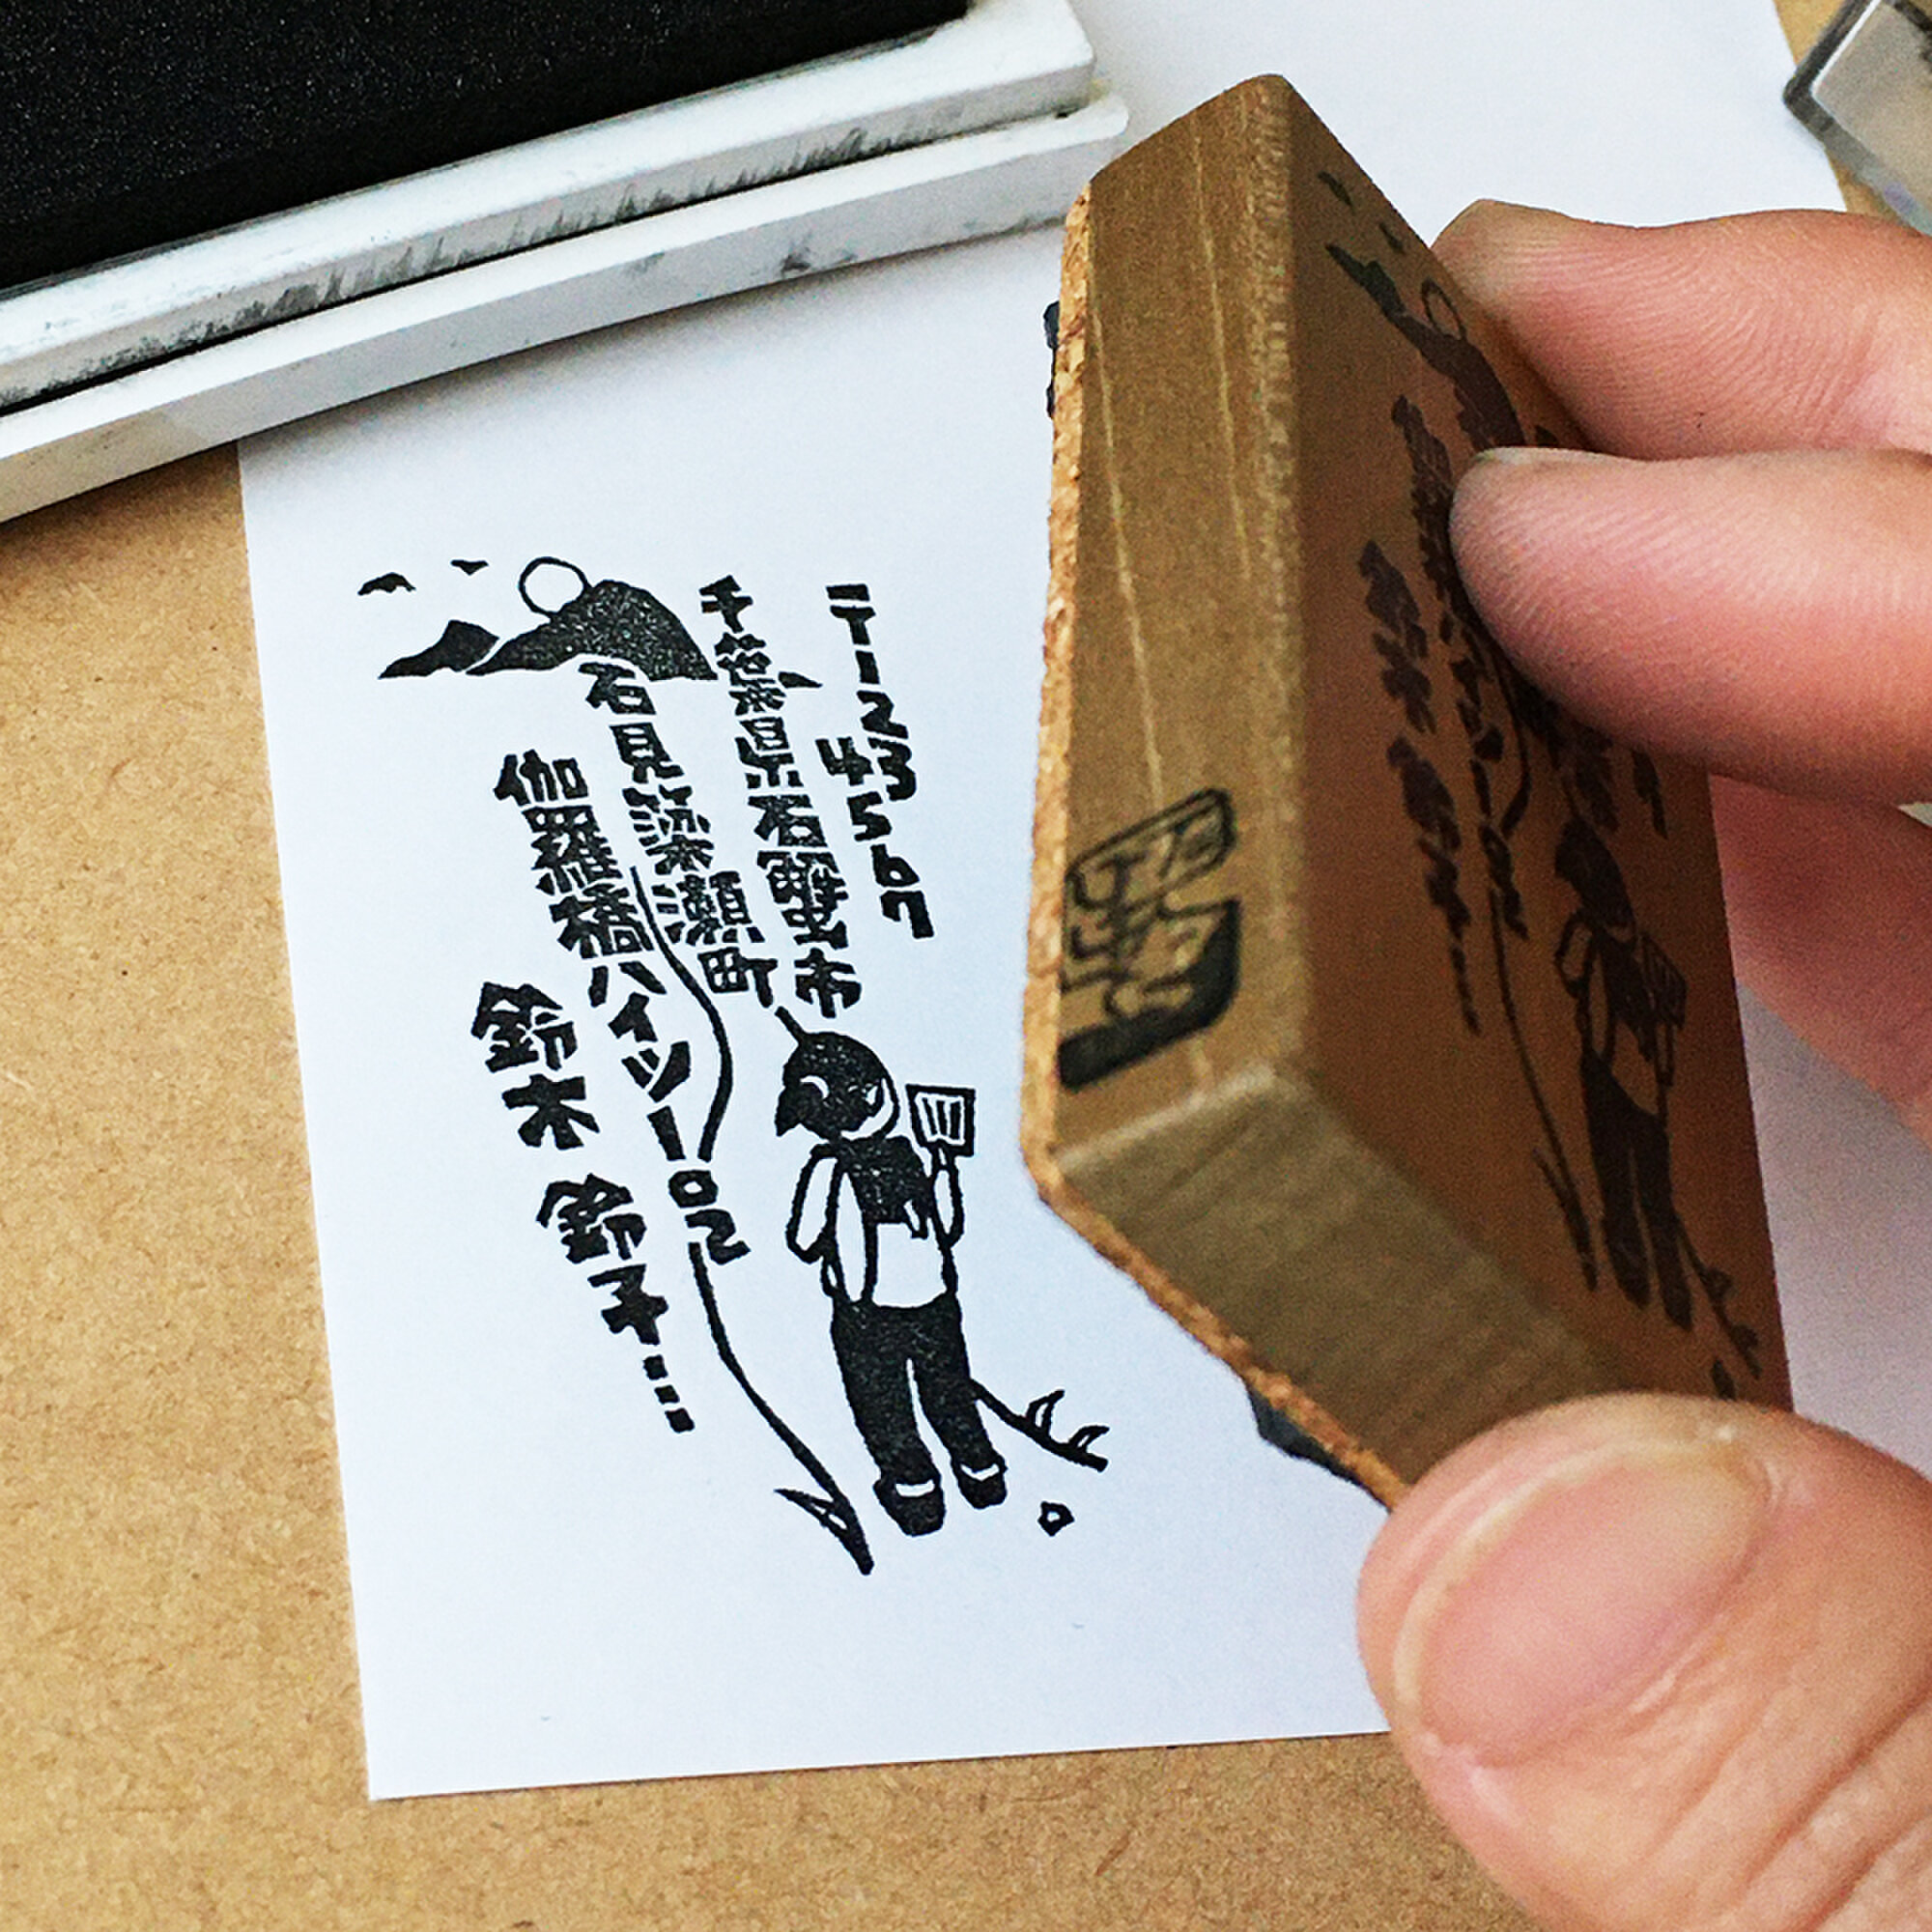 〒123
4567
千葉県石
石見簗瀬町
伽羅橋ハイツ102
鈴木 鈴子…